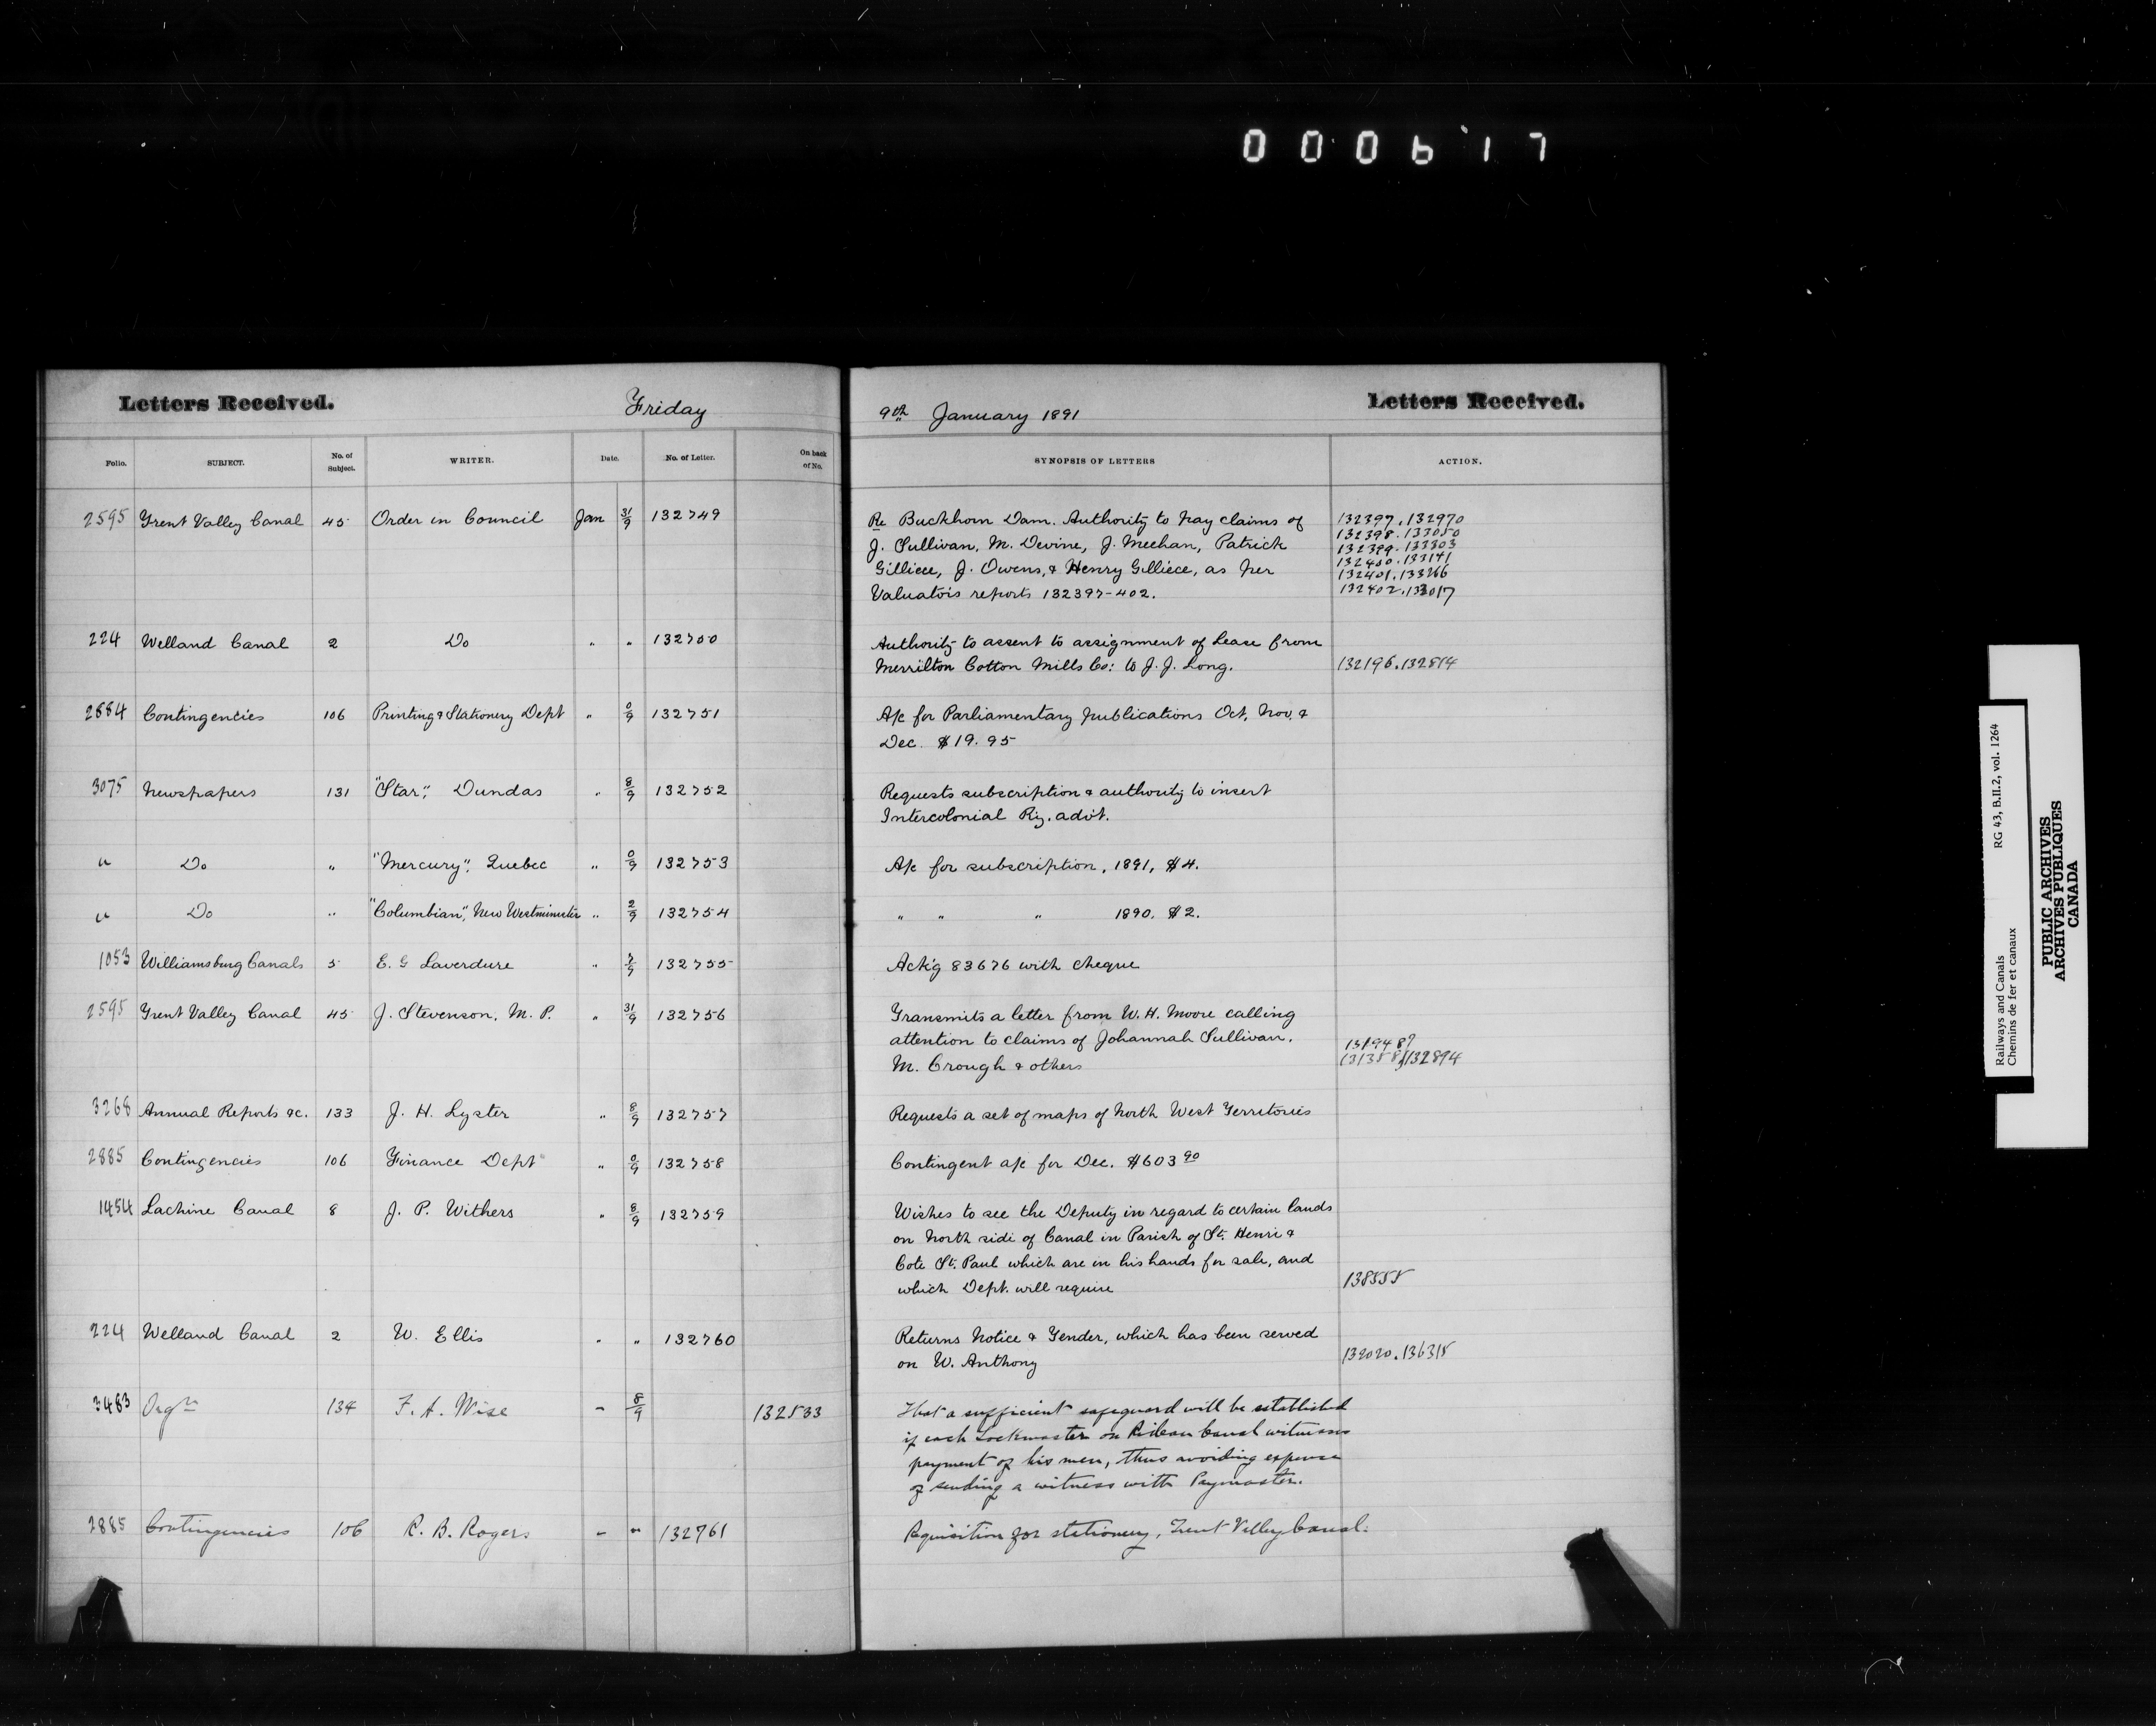 000617
Letters Received. Friday 9th January 1891 Letters Received.
Folio. SUBJECT. No. of Subject. WRITER. Date. No. of Letter. On back of No. SYNOPSIS OF LETTERS ACTION.
2595 Trent Valley Canal 45 Order in Council Jan 31/9 132749 Re Buckhorn Dam. Authority to pay claims of 132397.132970
132398.133050
J. Sullivan, M. Devine, J. Meehan, Patrick 132399.133303
132400.133141
Gilliece, J. Owens, & Henry Gilliece, as per 132401.133266
Valuators reports 132397-402. 132402.133017
224 Welland Canal 2 Do " " 132750 Authority to assent to assignment of Lease from
Merrilton Cotton Mills Co: to J. J. Long. 132196.132814
2884 Contingencies 106 Printing & Stationery Dept " 0/9 132751 A/c for Parliamentary publications Oct, Nov, &
Dec. $19.95
3075 Newspapers 131 "Star", Dundas " 8/9 132752 Requests subscription & authority to insert
Intercolonial Ry. advt.
" Do " "Mercury", Quebec " 0/9 132753 A/c for subscription, 1891, $4.
" Do " "Columbian", New Westminster " 2/9 132754 " " " 1890. $2.
1053 Williamsburg Canals 5 E. G Laverdure " 132755 Ack'g 83676 with cheque
2595 Trent Valley Canal 45 J. Stevenson, M. P. " 31/9 132756 Transmits a letter from W. H. Moore calling
attention to claims of Johannah Sullivan,
M. Crough & others 132894
3268 Annual Reports &c. 133 J. H. Lyster " 8/9 132757 Requests a set of maps of North West Territories
2885 Contingencies 106 Finance Dept " 0/9 132758 Contingent a/c for Dec. $603 90
1454 Lachine Canal 8 J. P. Withers " 8/9 132759 Wishes to see the Deputy in regard to certain lands
on North side of Canal in Parish of St. Henri &
Cote St. Paul which are in his hands for sale, and
which Dept. will require 138555
224 Welland Canal 2 W. Ellis " " 132760 Returns Notice & Tender, which has been served
on W. Anthony 132020.136315
3483 Orgn 134 F. A. Wise " 8/9 132533 That a sufficient safeguard will be established
if each Lockmaster on Rideau Canal witnesses
payment of his men, thus avoiding expense
of sending a witness with Paymaster.
2885 Contingencies 106 R. B. Rogers " " 132761 Requisition for stationery, Trent Valley Canal.
Railways and Canals RG 43, B.II.2, vol. 1264
Chemins de fer et canaux
PUBLIC ARCHIVES
ARCHIVES PUBLIQUES
CANADA